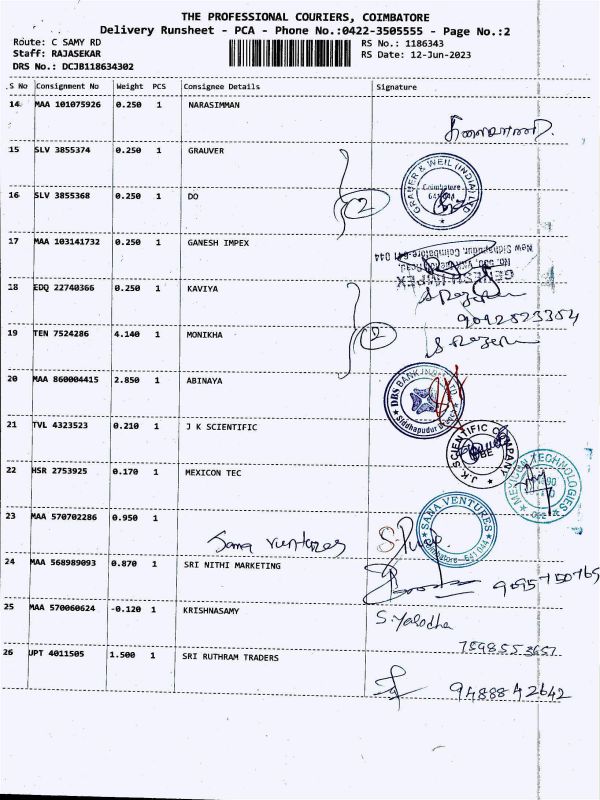 THE PROFESSIONAL COURIERS, COIMBATORE
Delivery Runsheet - PCA - Phone No.:0422-3505555 - Page No.:2
Route: C SAMY RD
RS No.: 1186343
Staff: RAJASEKAR
RS Date: 12-Jun-2023
DRS No.: DCJB118634302
S No Consignment No Weight PCS Consignee Details Signature
14 MAA 101075926 0.250 1 NARASIMMAN
15 SLV 3855374 0.250 1 GRAUVER
GRAUER & WEIL (INDIA) LTD
Coimbatore
641 044
16 SLV 3855368 0.250 1 DO
2
17 MAA 103141732 0.250 1 GANESH IMPEX
GENESH IMPEX
New Sidhapudur, Coimbatore-641 044
18 EDQ 22740366 0.250 1 KAVIYA
9012523354
19 TEN 7524286 4.140 1 MONIKHA
2
20 MAA 860004415 2.850 1 ABINAYA
DBS BANK INDIA LTD
Siddhapudur Branch
21 TVL 4323523 0.210 1 J K SCIENTIFIC
J.K SCIENTIFIC COMPANY
CBE
22 HSR 2753925 0.170 1 MEXICON TEC
MEXICON TECHNOLOGIES
23 MAA 570702286 0.950 1
Sana Ventures
SANA VENTURES
Coimbatore-641 044
24 MAA 568989093 0.870 1 SRI NITHI MARKETING
9095750765
25 MAA 570060624 -0.120 1 KRISHNASAMY
S. Yalodha
7598553657
26 UPT 4011505 1.500 1 SRI RUTHRAM TRADERS
9488842642